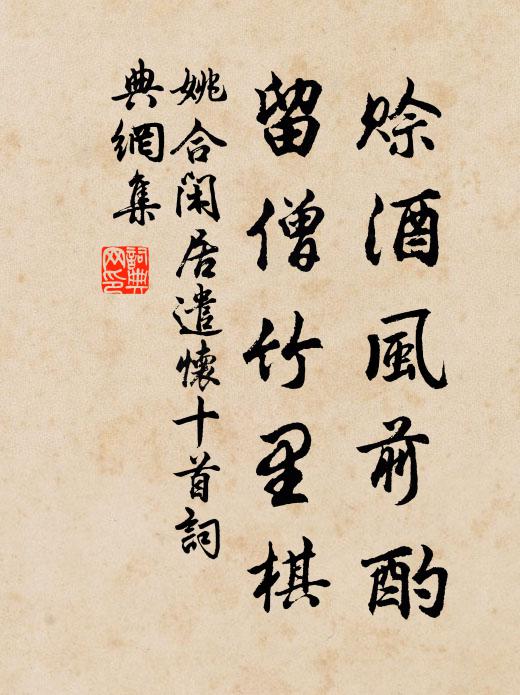 赊酒風前酌
留僧竹里棋
姚合閑居遣懷十首詞
典網集
詞典
网印